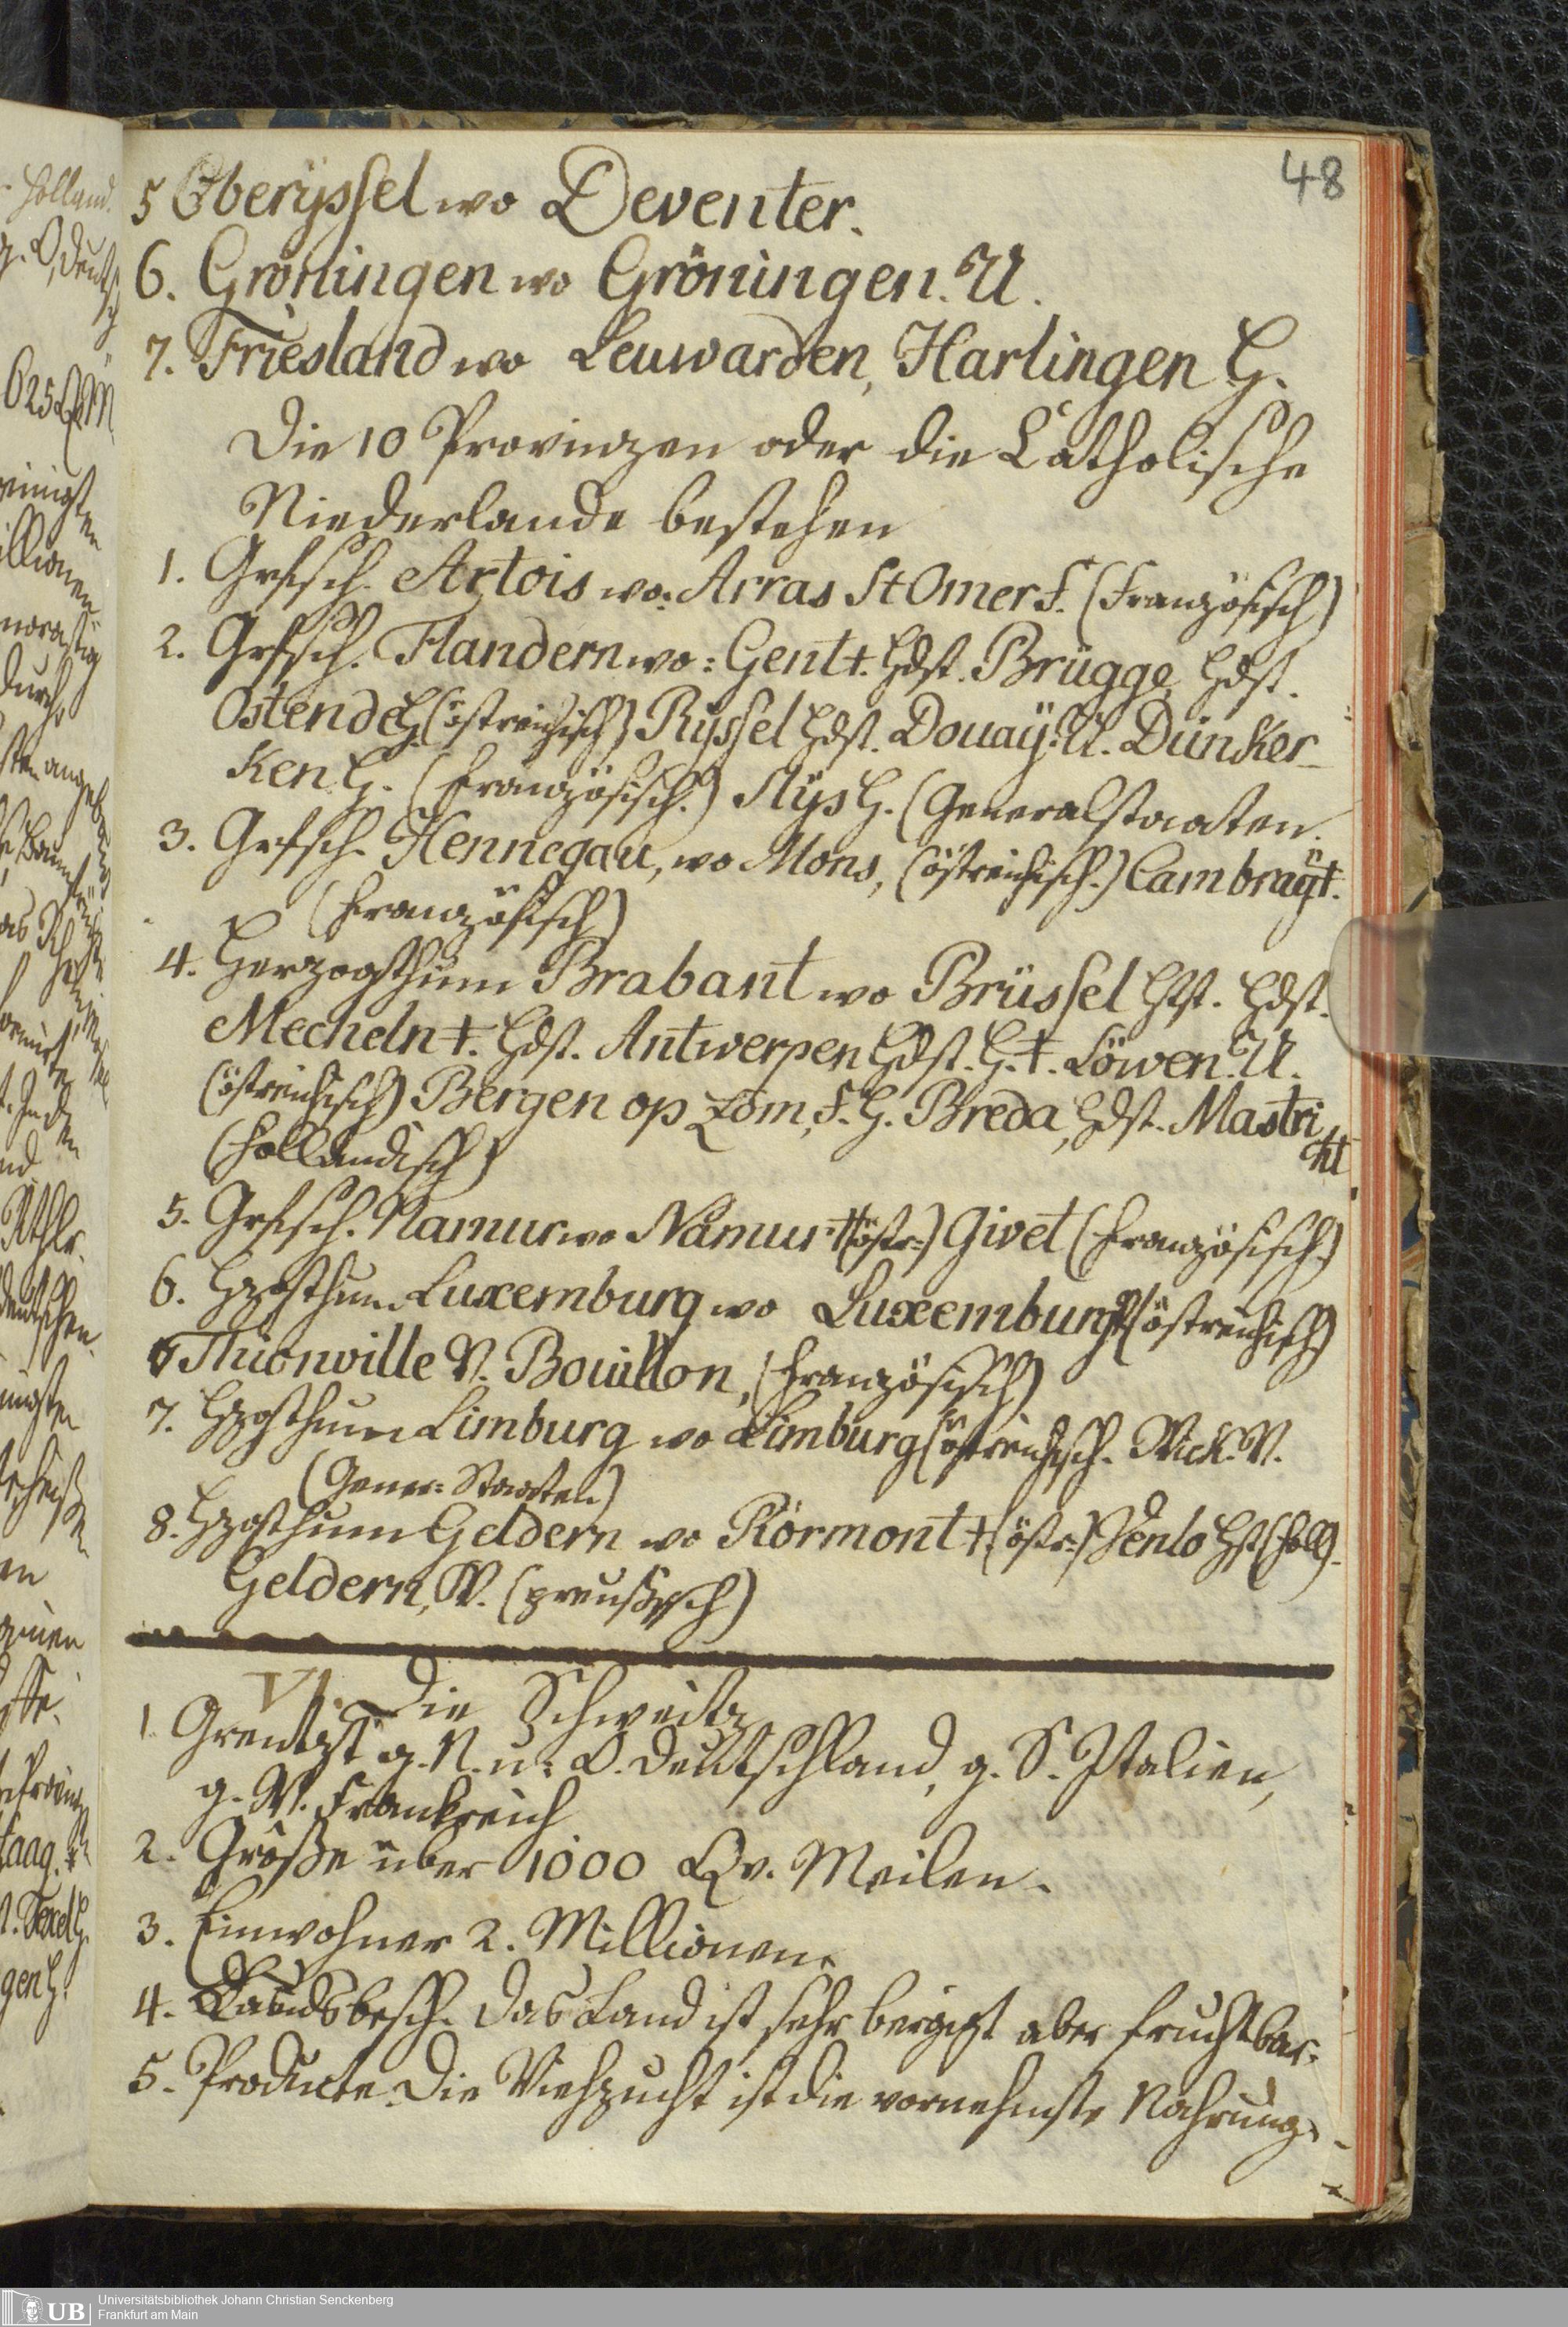 48
5 Oberÿssel wo Deventer.
6. Gröningen wo Gröningen. U.
7. Friesland wo Leuwarden, Harlingen H.
Die 10 Provinzen oder die Catholische
Niederlande bestehen
1. Grfsch. Artois wo: Arras St Omer F. (Französisch)
2. Grfsch. Flandern wo: Gent †. Hdst. Brügge Hdst.
Ostende H. (östreichisch) Ryssel Hdst. Douaÿ. U. Dünker-
ken. H. (Französisch.) Slÿs H. (Generalstaaten.
3. Grfsch. Hennegau, wo Mons, (östreichisch.) Cambraÿ †.
(Französisch)
4. Herzogthum Brabant wo Brüssel Hst. Hdst.
Mecheln †. Hdst. Antwerpen Hdst. H. †. Löwen. U.
(östreichisch) Bergen op Zom, F. H. Breda, Hdst. Mastri
cht
(Holländisch)
5. Grfsch. Namur wo Namur † (östr:) Givet (Französisch.)
6. Hzogthum Luxemburg wo Luxemburg (östreichisch)
Thionville V. Bouillon, (Französisch)
7. Hzogthum Limburg wo Limburg (östreichisch. Wick. V.
(Gener: Staaten)
8. Hzogthum Geldern wo Rörmont † (östr:) Venlo Hst (Holl).
Geldern, V. (preußisch)
VI. Die Schweitz
1 Grentzt g. N. u: O. Deutschland, g. S. Italien,
g. W. Frankreich
2. Größe über 1000 Qv. Meilen.
3. Einwohner 2. Millionen.
4. Landsbesch. Das Land ist sehr bergigt aber fruchtbar.
5. Producte. Die Viehzucht ist die vornehmste Nahrung.
UB
Universitätsbibliothek Johann Christian Senckenberg
Frankfurt am Main